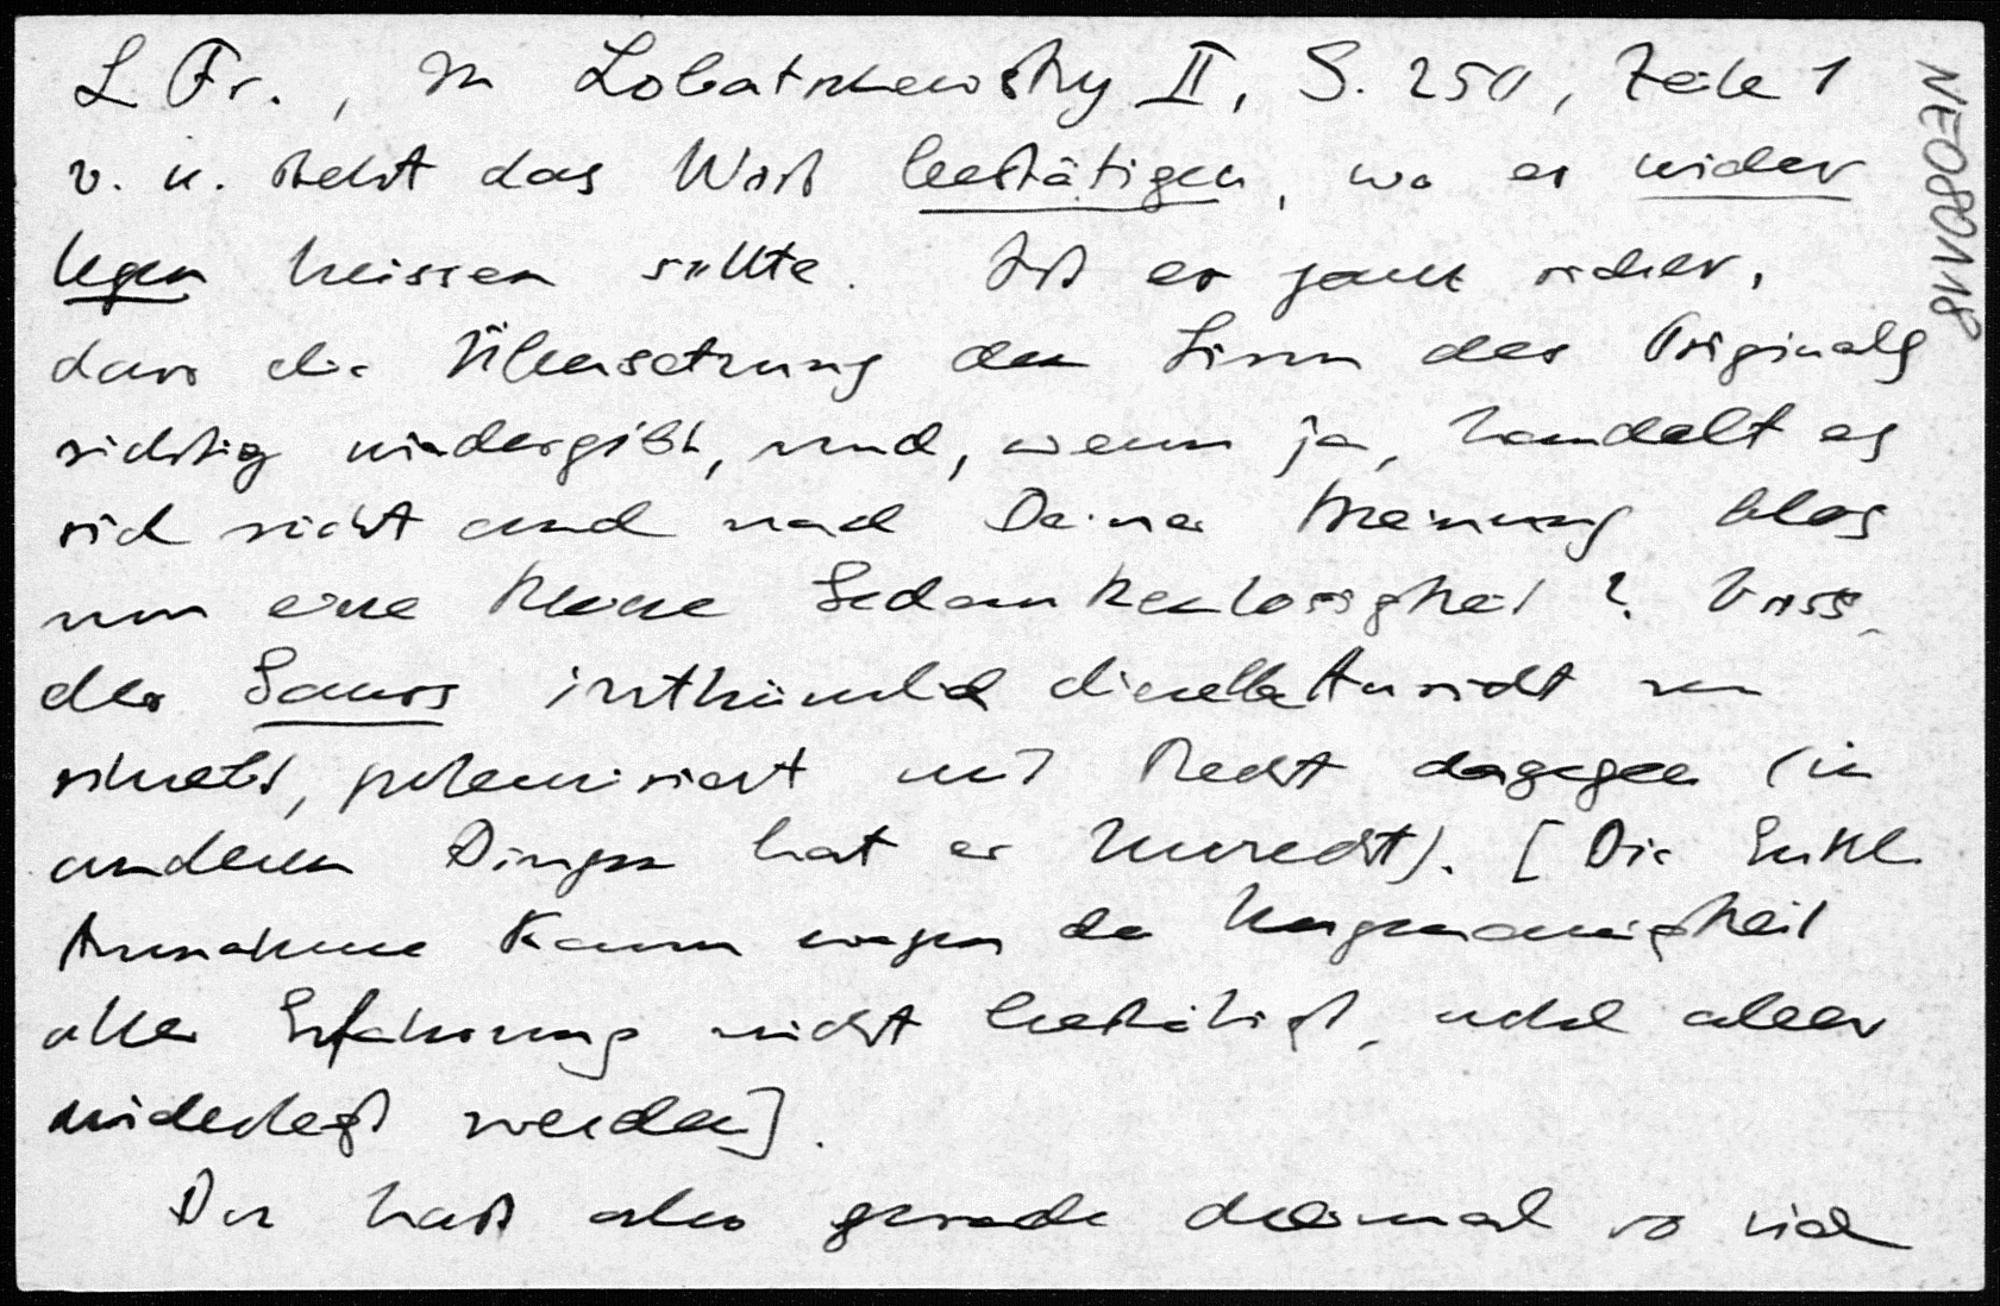 L Fr., In Lobatschewsky II, S. 250, Zeile 1
v. u. steht das Wort bestätigen, wo es wider
legen heissen sollte. Ist es ganz sicher,
dass die Übersetzung den Sinn des Originals
richtig wiedergibt, und, wenn ja, handelt es
sich nicht auch nach Deiner Meinung blos
um eine kleine Gedankenlosigkeit?
der Gauss irrthümlich dieselbe Ansicht zu
schreibt, polemisiert mit Recht dagegen (in
anderen Dingen hat er Unrecht). [Die Eukl.
Annahme kann wegen der Ungenauigkeit
aller Erfahrung nicht bestätigt, wohl aber
widerlegt werden].
Du hast aber gerade diesmal so viel
NE080118